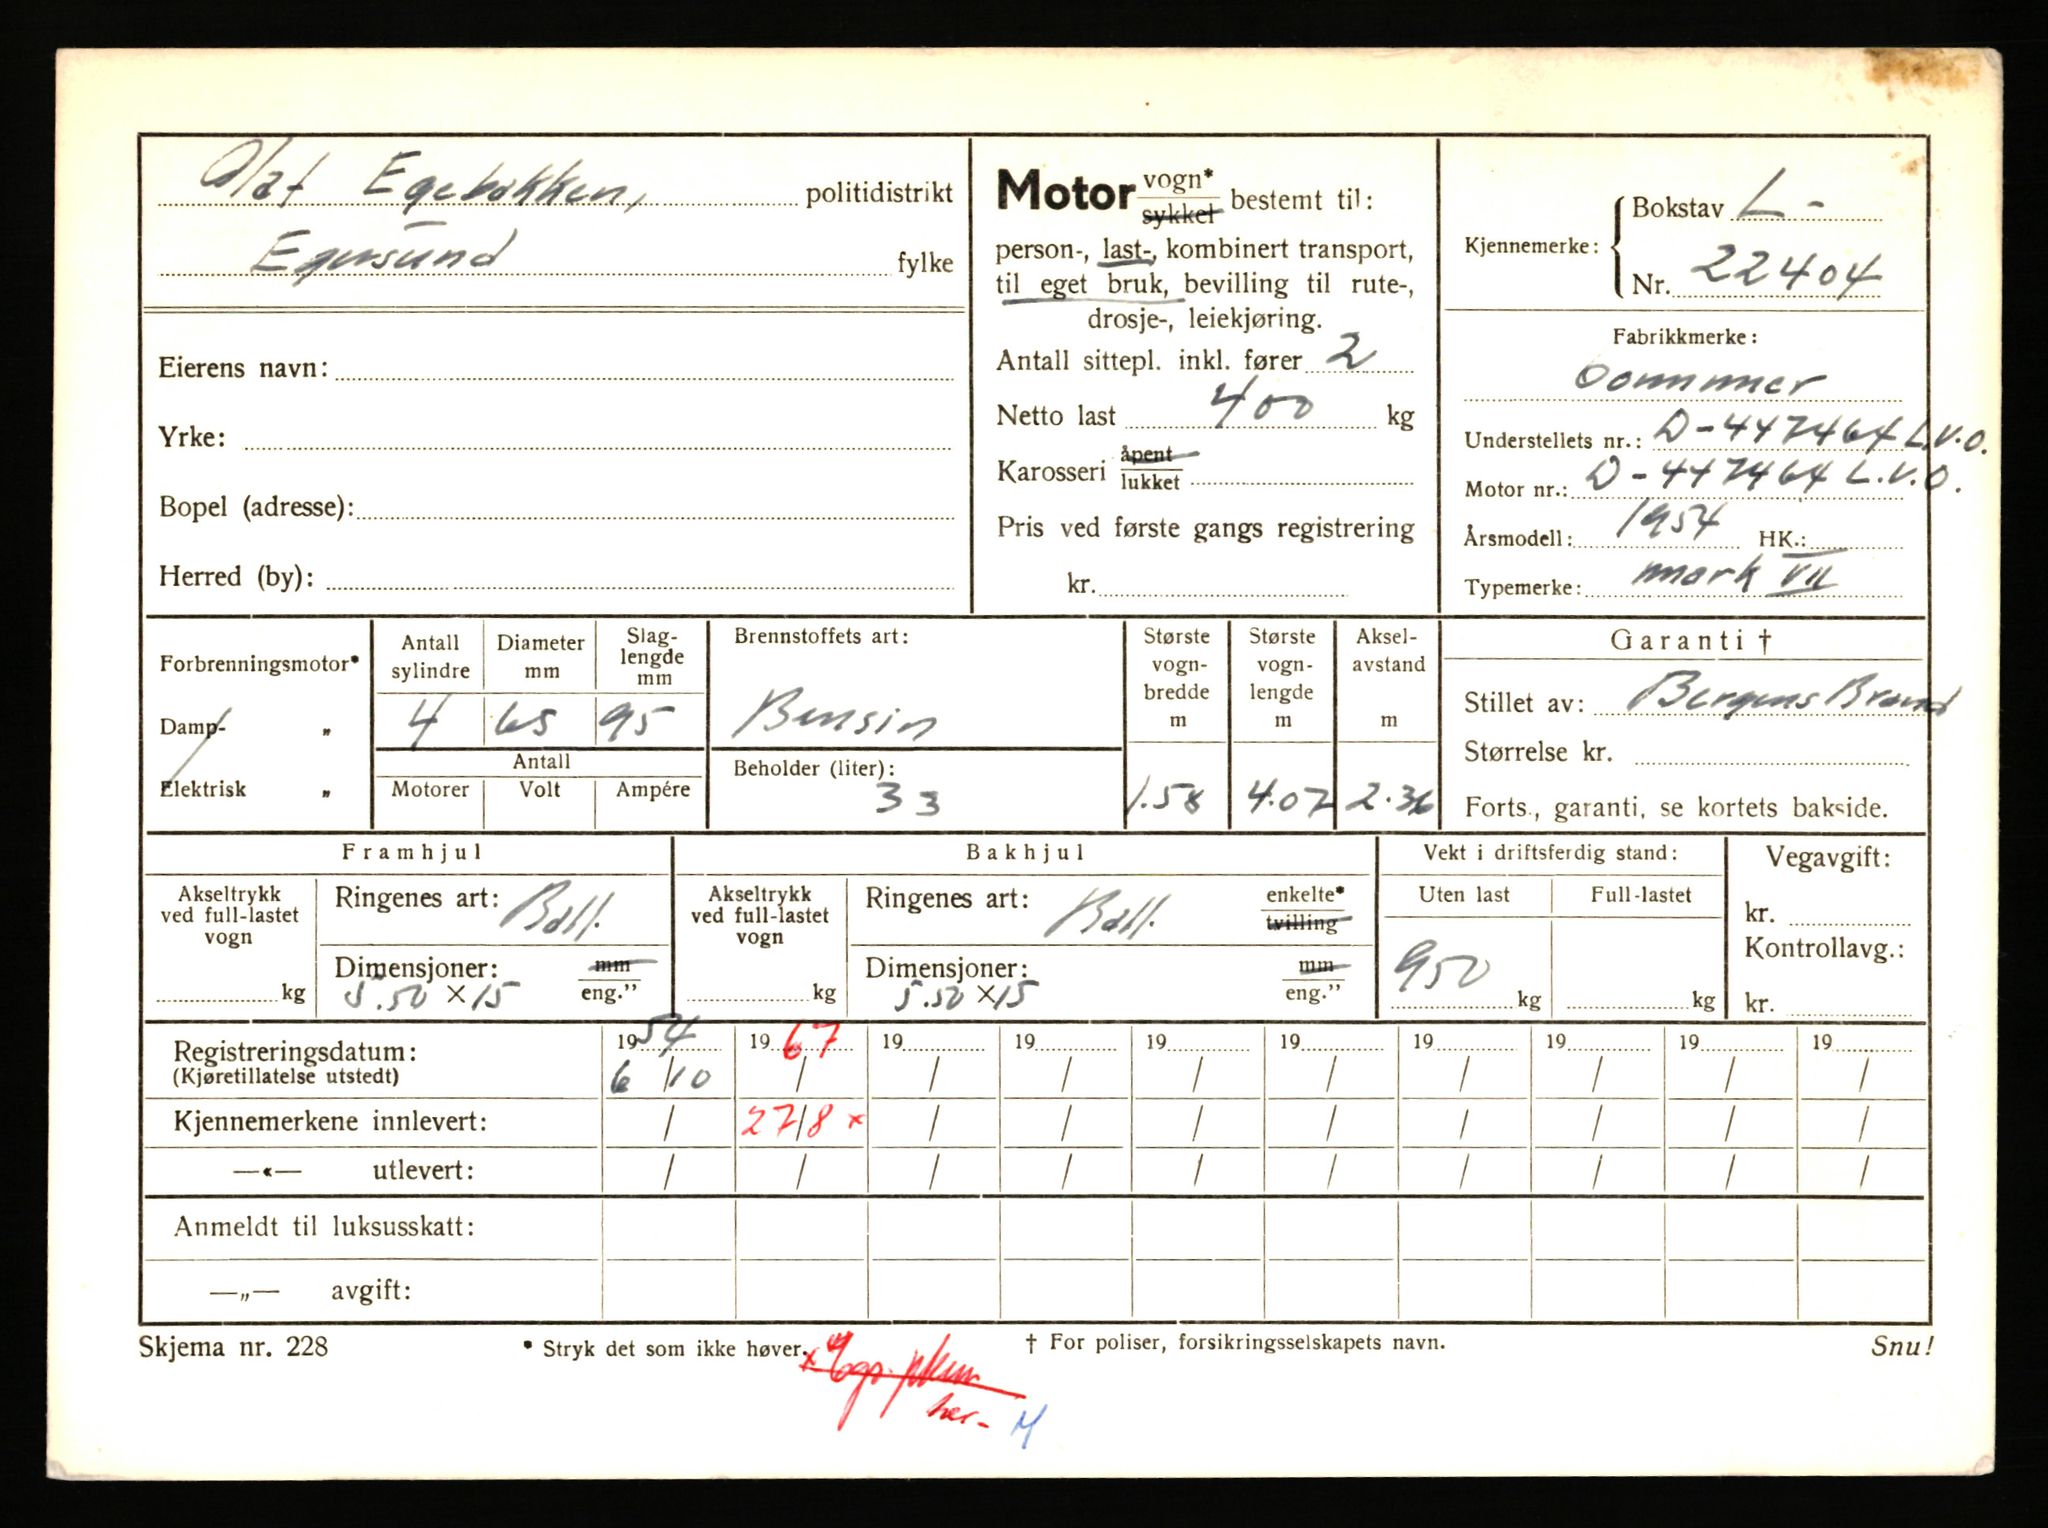 Olaf Egebakken, politidistrikt
Egersund fylke
Eierens navn:
Yrke:
Bopel (adresse):
Herred (by):
Motor vogn* sykkel bestemt til:
person-, last-, kombinert transport,
til eget bruk, bevilling til rute-,
drosje-, leiekjøring.
Antall sittepl. inkl. fører 2
Netto last 400 kg
Karosseri åpent lukket
Pris ved første gangs registrering
kr.
Kjennemerke: Bokstav L-
Nr. 22404
Fabrikkmerke:
Commer
Understellets nr.: D-447464 L.V.O.
Motor nr.: D-447464 L.V.O.
Årsmodell: 1954 HK.:
Typemerke: mark VII
Forbrenningsmotor*
Damp- „
Elektrisk „
Antall sylindre Diameter mm Slag-lengde mm
4 65 95
Antall
Motorer Volt Ampére
Brennstoffets art:
Bensin
Beholder (liter):
33
Største vogn-bredde m
1.58
Største vogn-lengde m
4.07
Aksel-avstand m
2.36
Garanti †
Stillet av: Bergens Brand
Størrelse kr.
Forts., garanti, se kortets bakside.
Framhjul
Akseltrykk ved full-lastet vogn
kg
Ringenes art: Ball.
Dimensjoner: mm
5.50 x 15 eng.”
Bakhjul
Akseltrykk ved full-lastet vogn
kg
Ringenes art: Ball. enkelte* tvilling
Dimensjoner: mm
5.50 x 15 eng.”
Vekt i driftsferdig stand:
Uten last Full-lastet
950 kg kg
Vegavgift:
kr.
Kontrollavg.:
kr.
Registreringsdatum: 1954 1967 19 19 19 19 19 19 19 19
(Kjøretillatelse utstedt) 6/10 / / / / / / / / /
Kjennemerkene innlevert: / 27/8 x / / / / / / / /
—«— utlevert: / / / / / / / / / /
Anmeldt til luksusskatt:
—„— avgift:
Skjema nr. 228 * Stryk det som ikke høver. † For poliser, forsikringsselskapets navn. Snu!
her-